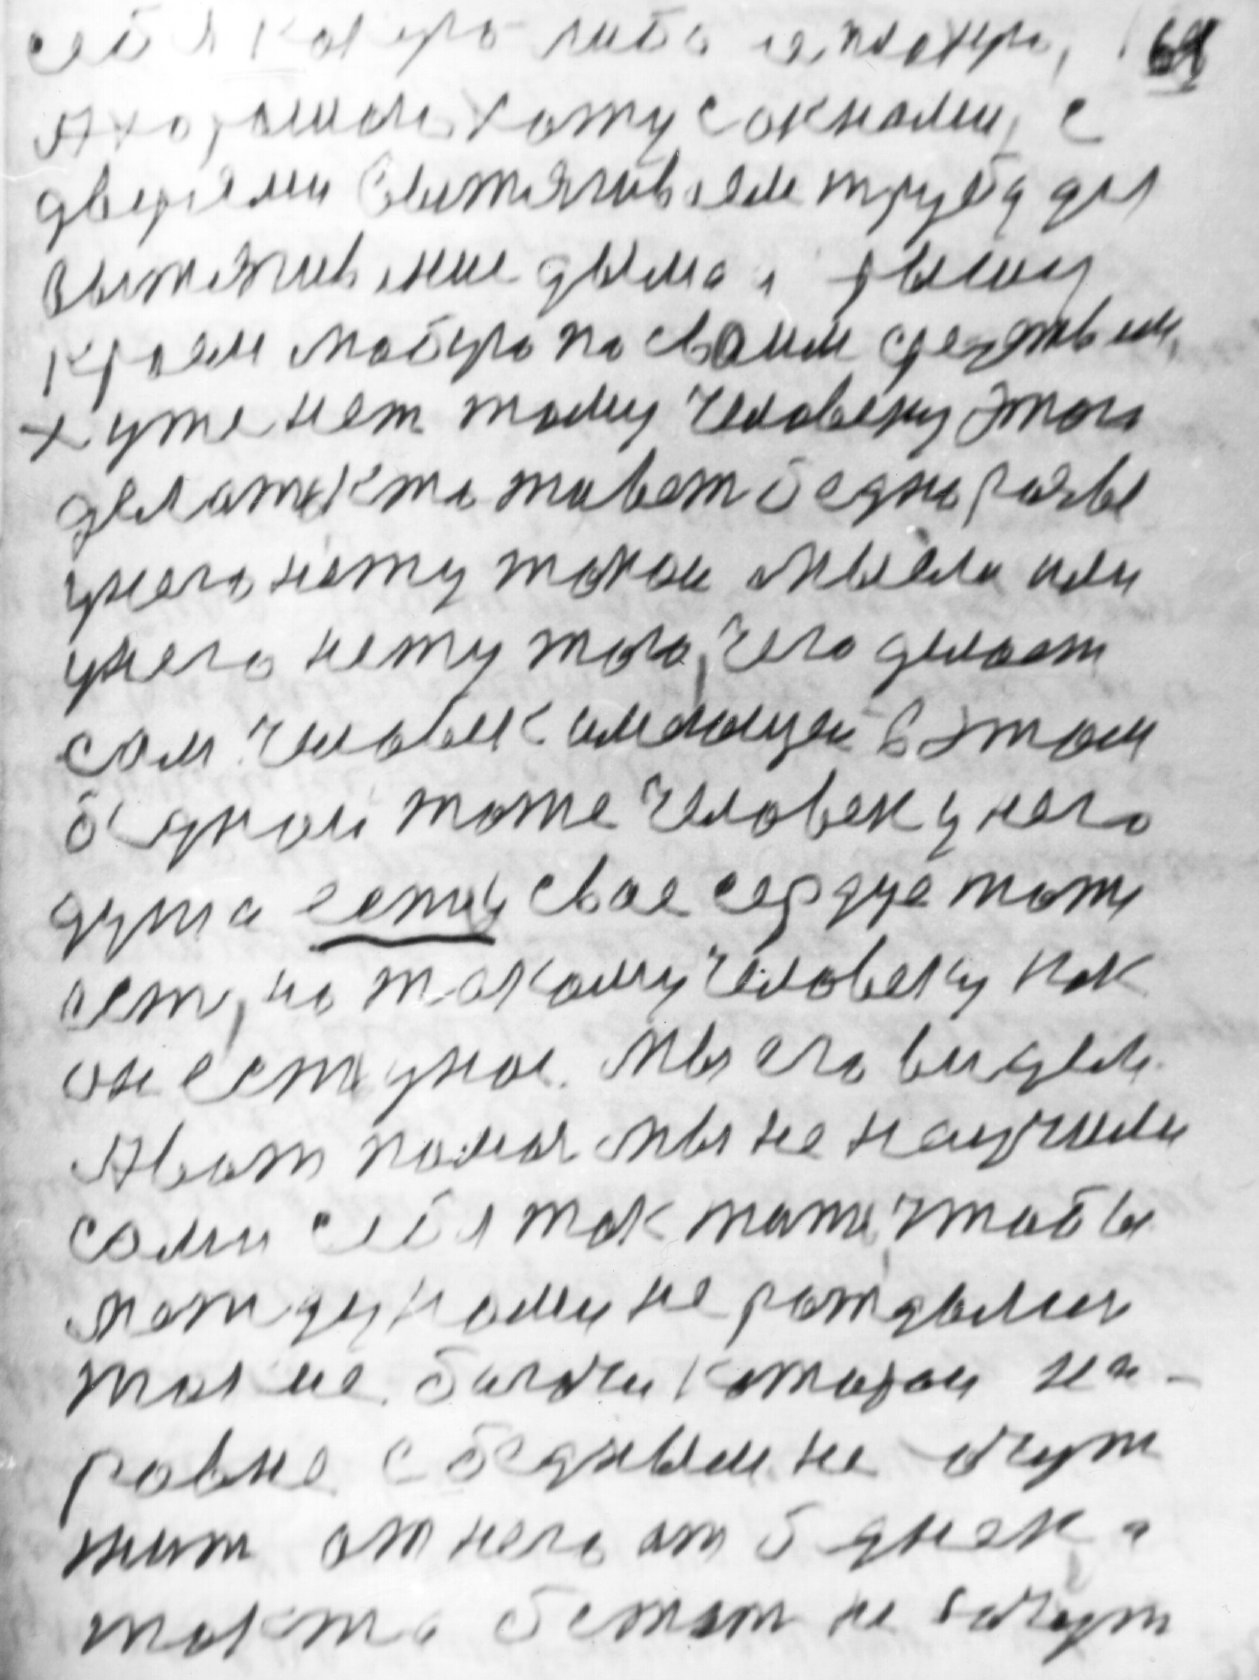 себя какую либо 61
А хорошою хату с окнами, с
дверями вытягиваем трубу для
вытягивание дыма, и крышу
кроем по своим средствам,
хуже нет тому человеку этого
делать кто живет бедно разве
унего нету такой мысли или
унего нету того, чего делает
сам человек имеющей в этом
бедной тоже человек у него
душа есть свае сердце тоже
ест, но такому человеку как
он есть у нас. Мы его видели.
А вот пользы мы не научили
сами себя так жить, чтобы
между нами не рождались
такие богачи которои на-
равне с бедным не хочут
жит от него от бедняка
так то бежат не хочут